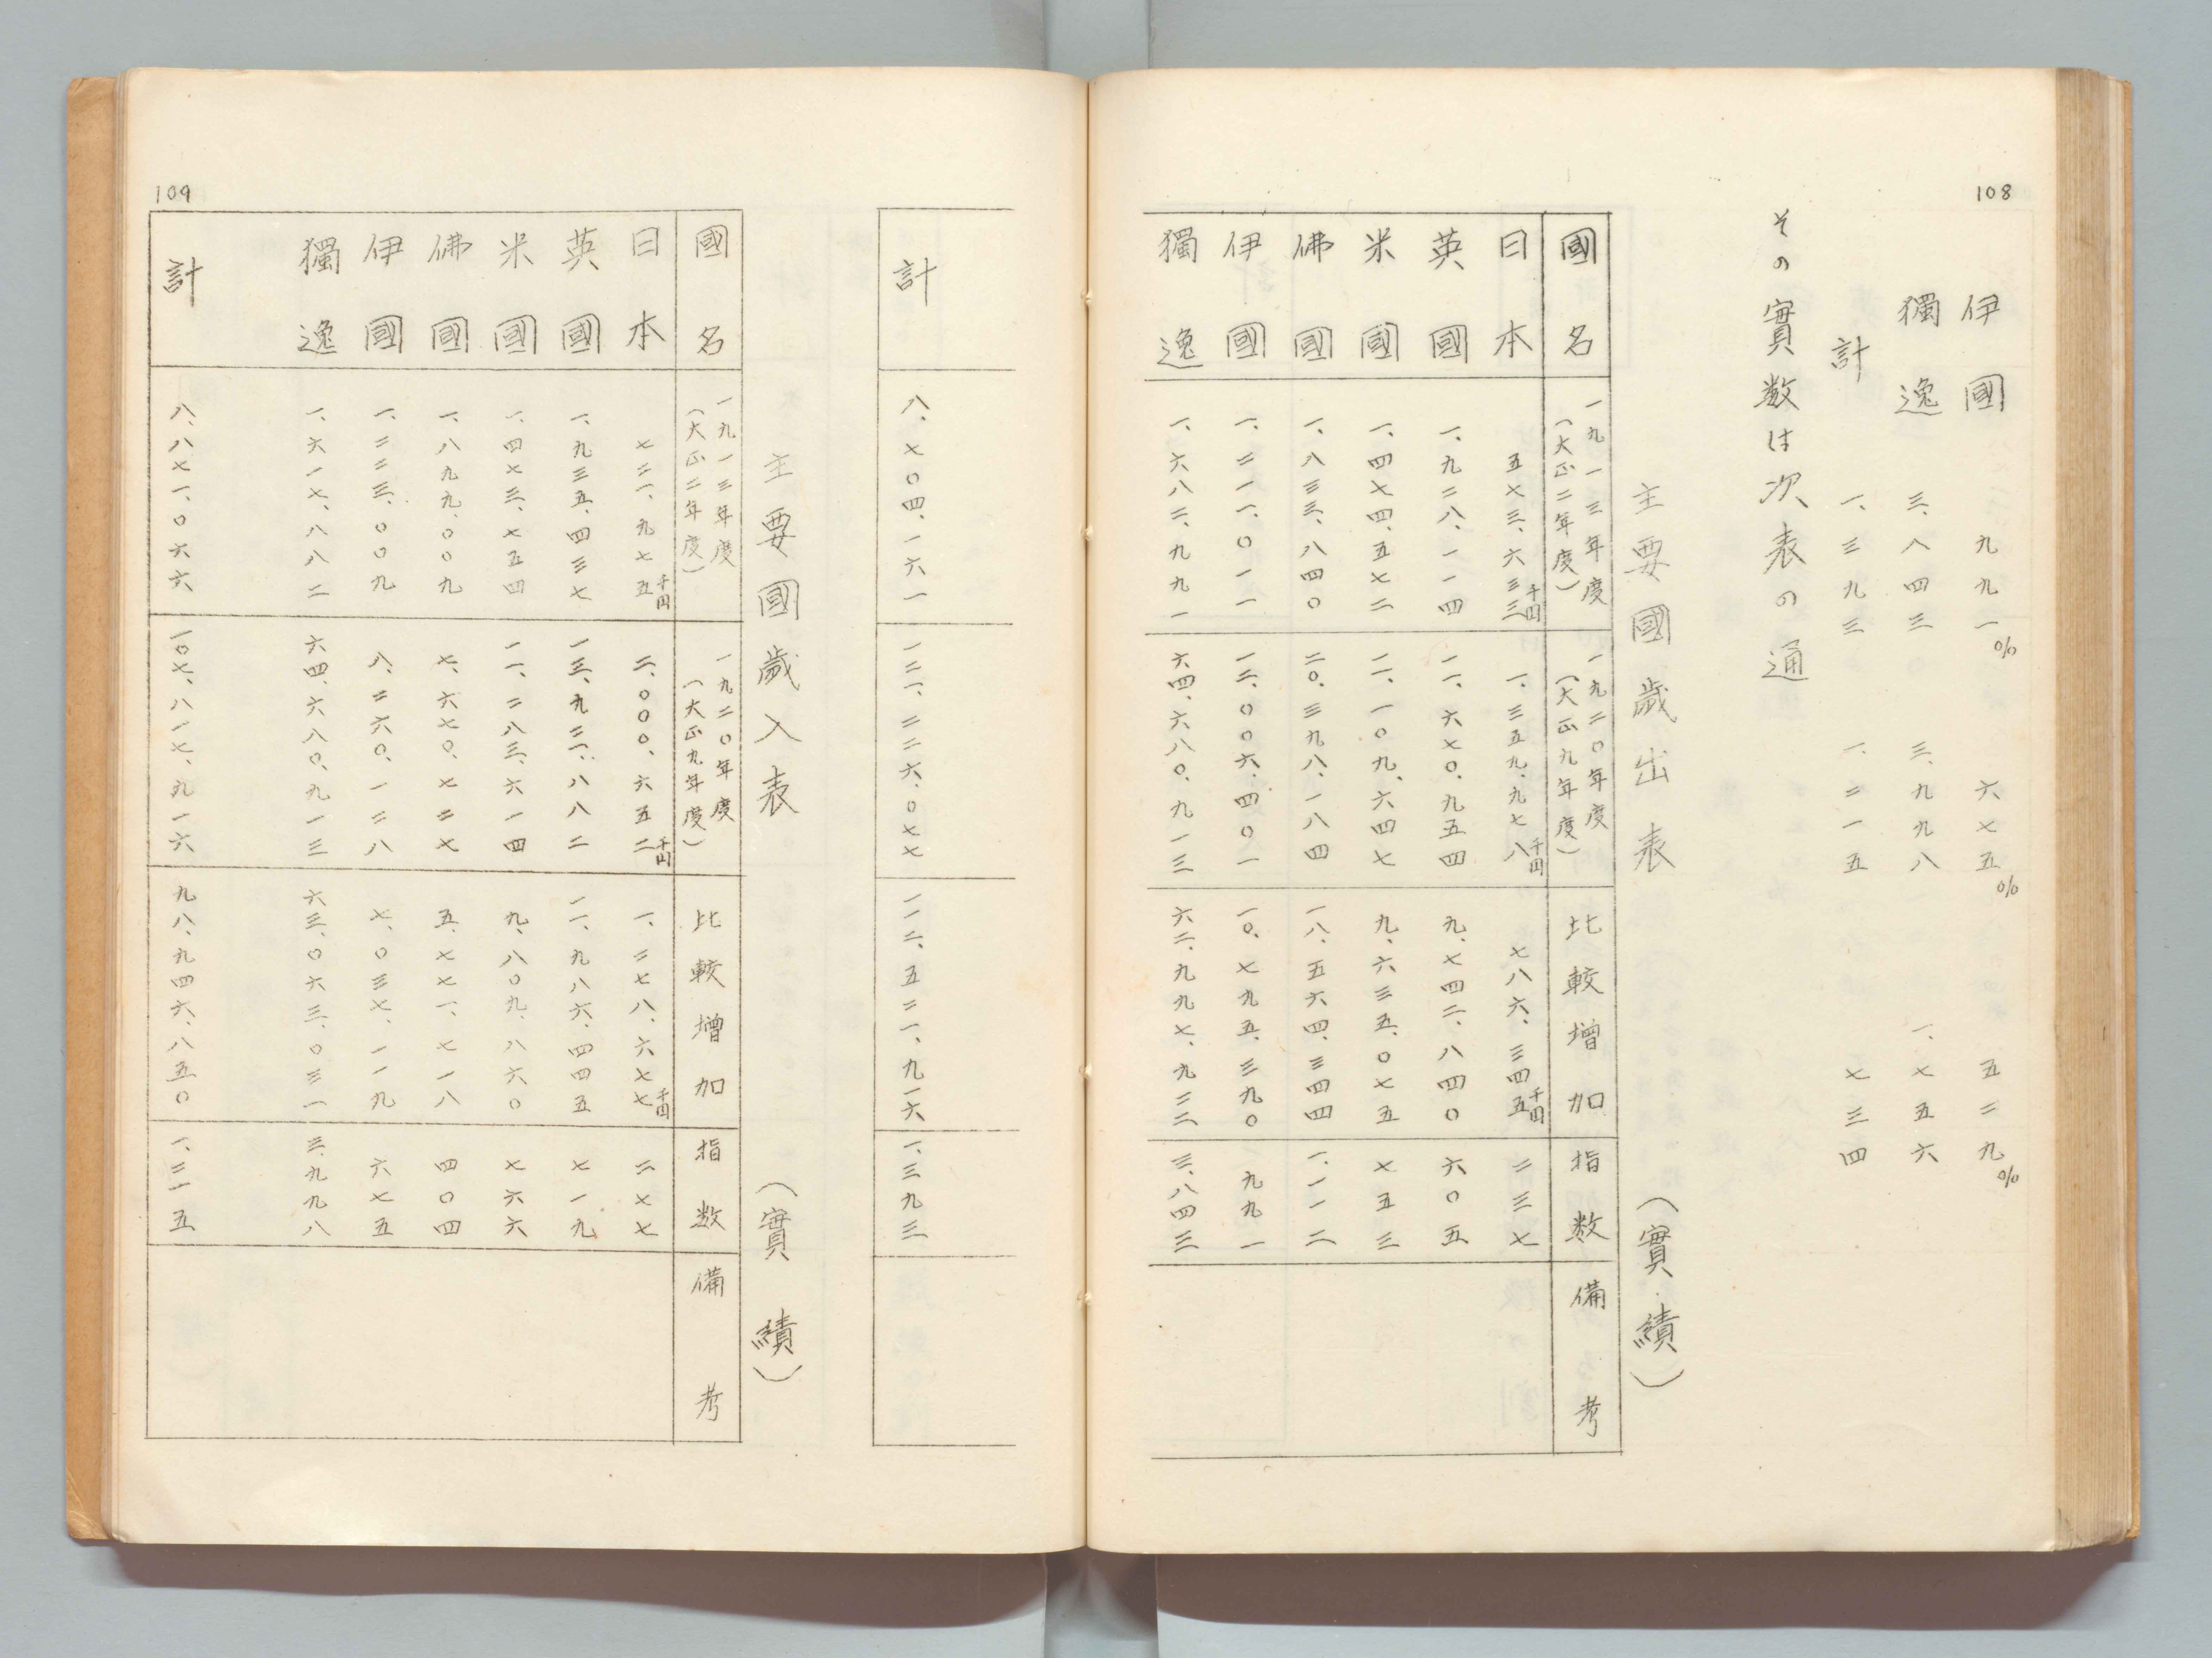 108
伊國 九九一% 六七五% 五二九%
獨逸 三、八四三 三、九九八 一、七五六
計 一、三九三 一、二一五 七三四
その實数は次表の通
主要國歳出表 (實績)
國名 一九一三年度(大正二年度) 一九二〇年度(大正九年度) 比較増加 指数 備考
日本 五七三、六三三千円 一、三五九、九七八千円 七八六、三四五千円 二三七
英國 一、九二八、一一四 一一、六七〇、九五四 九、七四二、八四〇 六〇五
米國 一、四七四、五七二 一一、一〇九、六四七 九、六三五、〇七五 七五三
佛國 一、八三三、八四〇 二〇、三九八、一八四 一八、五六四、三四四 一、一一二
伊國 一、二一一、〇一一 一二、〇〇六、四〇一 一〇、七九五、三九〇 九九一
獨逸 一、六八二、九九一 六四、六八〇、九一三 六二、九九七、九二二 三、八四三
計 八、七〇四、一六一 一二一、二二六、〇七七 一一二、五二一、九一六 一、三九三
主要國歳入表 (實績)
國名 一九一三年度(大正二年度) 一九二〇年度(大正九年度) 比較増加 指数 備考
日本 七二一、九七五千円 二、〇〇〇、六五二千円 一、二七八、六七七千円 二七七
英國 一、九三五、四三七 一三、九二一、八八二 一一、九八六、四四五 七一九
米國 一、四七三、七五四 一一、二八三、六一四 九、八〇九、八六〇 七六六
佛國 一、八九九、〇〇九 七、六七〇、七二七 五、七七一、七一八 四〇四
伊國 一、二二三、〇〇九 八、二六〇、一二八 七、〇三七、一一九 六七五
獨逸 一、六一七、八八二 六四、六八〇、九一三 六三、〇六三、〇三一 三、九九八
計 八、八七一、〇六六 一〇七、八一七、九一六 九八、九四六、八五〇 一、二一五
109